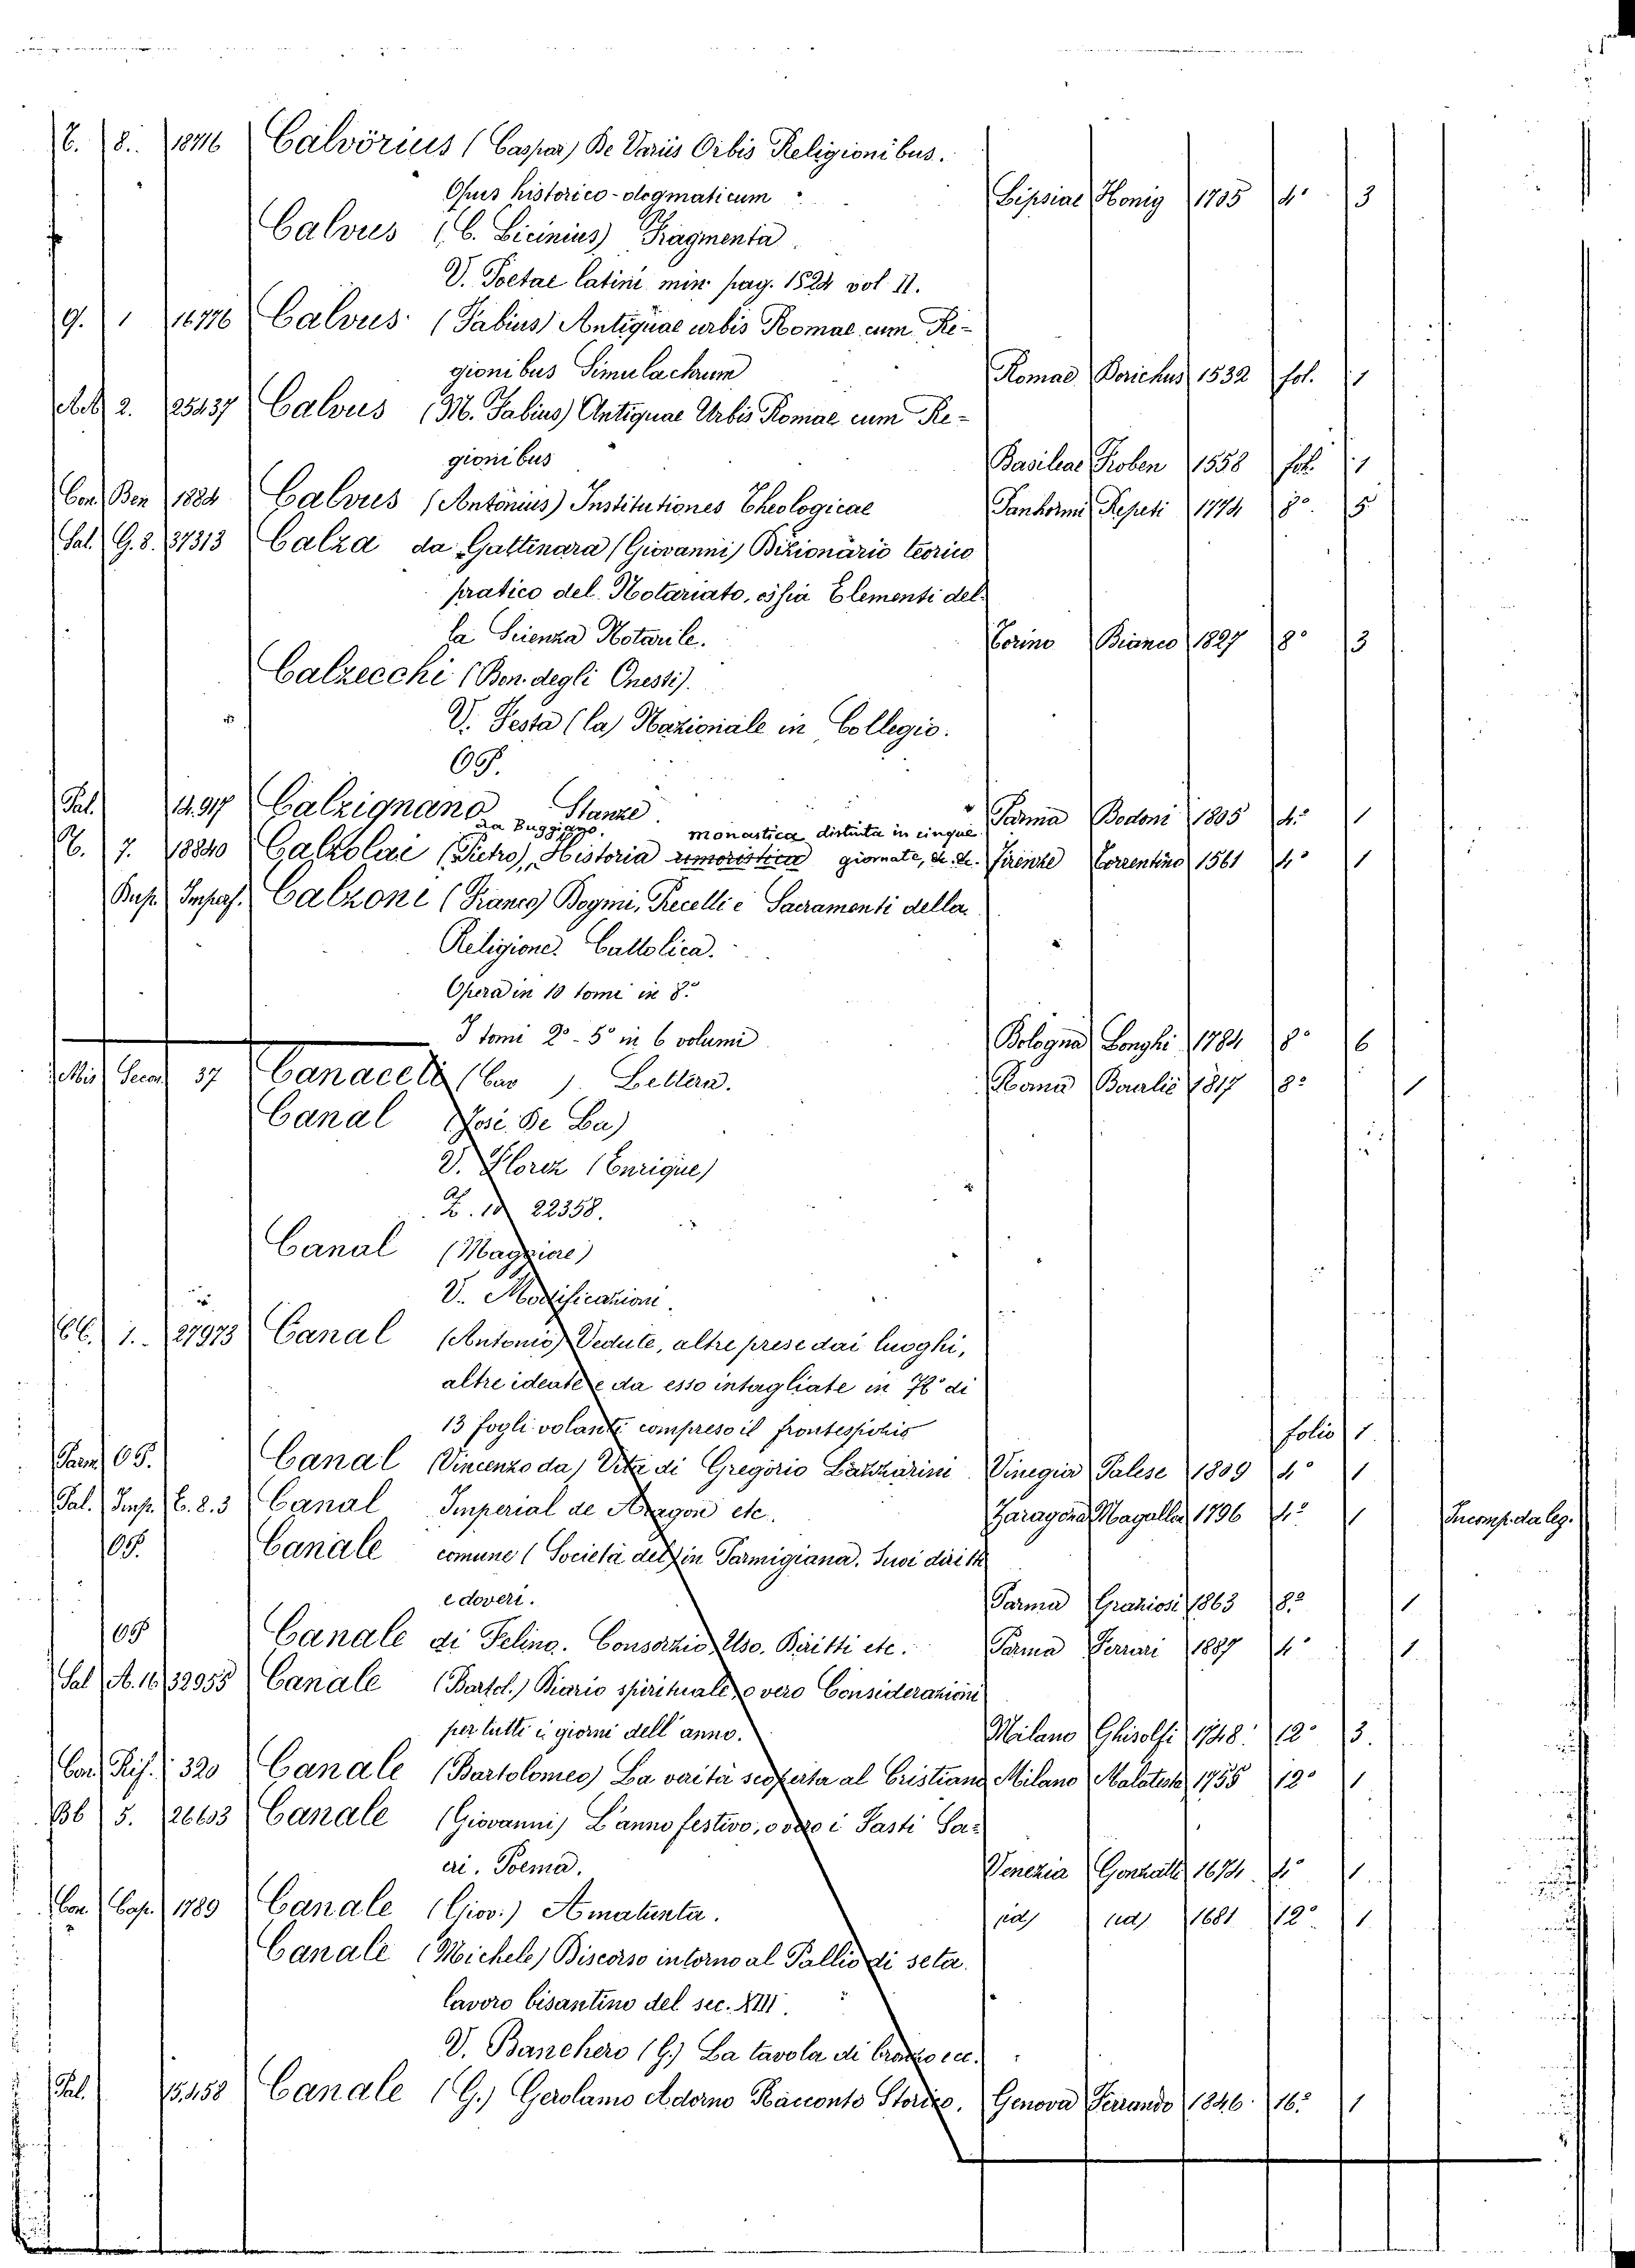 C. 8. 18716 Calvörius (Caspar) De Variis Orbis Religionibus.
Opus historico-dogmaticum Lipsiae Honig 1705 4° 3
Calvus (C. Licinius) Fragmenta.
V. Poetae latini min. pag. 1524 vol II.
9. 1 16776 Calvus (Fabius) Antiquae urbis Romae cum Re-
gionibus Simulachrum Romae Dorichus 1532 fol. 1
2. 25437 Calvus (M. Fabius) Antiquae Urbis Romae cum Re-
gionibus Basileae Froben 1558 fol. 1
Con. Ben 1884 Calvus (Antonius) Institutiones Theologicae Repeti 1774 8° 5
Sal. G. 8. 37313 Calza da Gattinara (Giovanni) Dizionario teorico
pratico del Notariato, ossia Elementi del-
la Scienza Notarile. Torino Bianco 1827 8° 3
Calzecchi (Ben. degli Onesti).
V. Festa (la) Nazionale in Collegio.
Pal. 14.917 Calzignano Stanze. Parma Bodoni 1805 4° 1
da Buggiano. monastica distinta in cinque
7. 18840 Calzolai (Pietro), Historia umoristica giornate, &. &. Firenze Torrentino 1561 4° 1
Calzoni (Franco) Dogmi, Precetti e Sacramenti della
Religione Cattolica.
Opera in 10 tomi in 8°
I tomi 2° - 5° in 6 volumi Bologna Longhi 1784 8° 6
37 Canacelli (Cav ). Lettera. Roma 1817 8° 1
Canal (José De La)
V. Florez (Enrique)
Z. 10 22358.
Canal (Maggiore)
V. Modificazioni.
1. 27973 Canal (Antonio) Vedute, altre prese dai luoghi,
altre ideate e da esso intagliate in di
13 fogli volanti compreso il frontespizio folio 1
Canal (Vincenzo da) Vita di Gregorio Lazzarini Vinegia Palese 1809 4° 1
Pal. Imp. C. 2. 3 Canal Imperial de Aragon etc. Zaragoza Magallon 1796 4° 1 Incomp. da leg.
Canale comune (Società del) in Parmigiana. Suoi diritti
e doveri. Parma Graziosi 1863 8° 1
Canale di Felino. Consorzio, Uso. Diritti etc. Parma Ferrari 1887 4° 1
Sal A. 16 32955 Canale (Bartol.) Diario spirituale, overo Considerazioni
per tutti i giorni dell'anno. Milano Ghisolfi 1748. 12° 3.
Con. Rif. 320 Canale (Bartolomeo) La varità scoperta al Cristiano Milano Malatesta 1755 12° 1
Bb 5. 26603 Canale (Giovanni) L'anno festivo, overo i Fasti Sa-
cri. Poema. Venezia 1674 4° 1
Con. Cap. 1789 Canale (Giov.) Amatunta. (id) (id) 1681 12° 1
Canale (Michele) Discorso intorno al Pallio di seta
lavoro bisantino del sec. XIII.
V. Banchero (G.) La tavola di bronzo ecc.
Pal. 15.458 Canale (G.) Gerolamo Adorno Racconto Storico. Genova Ferrando 1846 16° 1